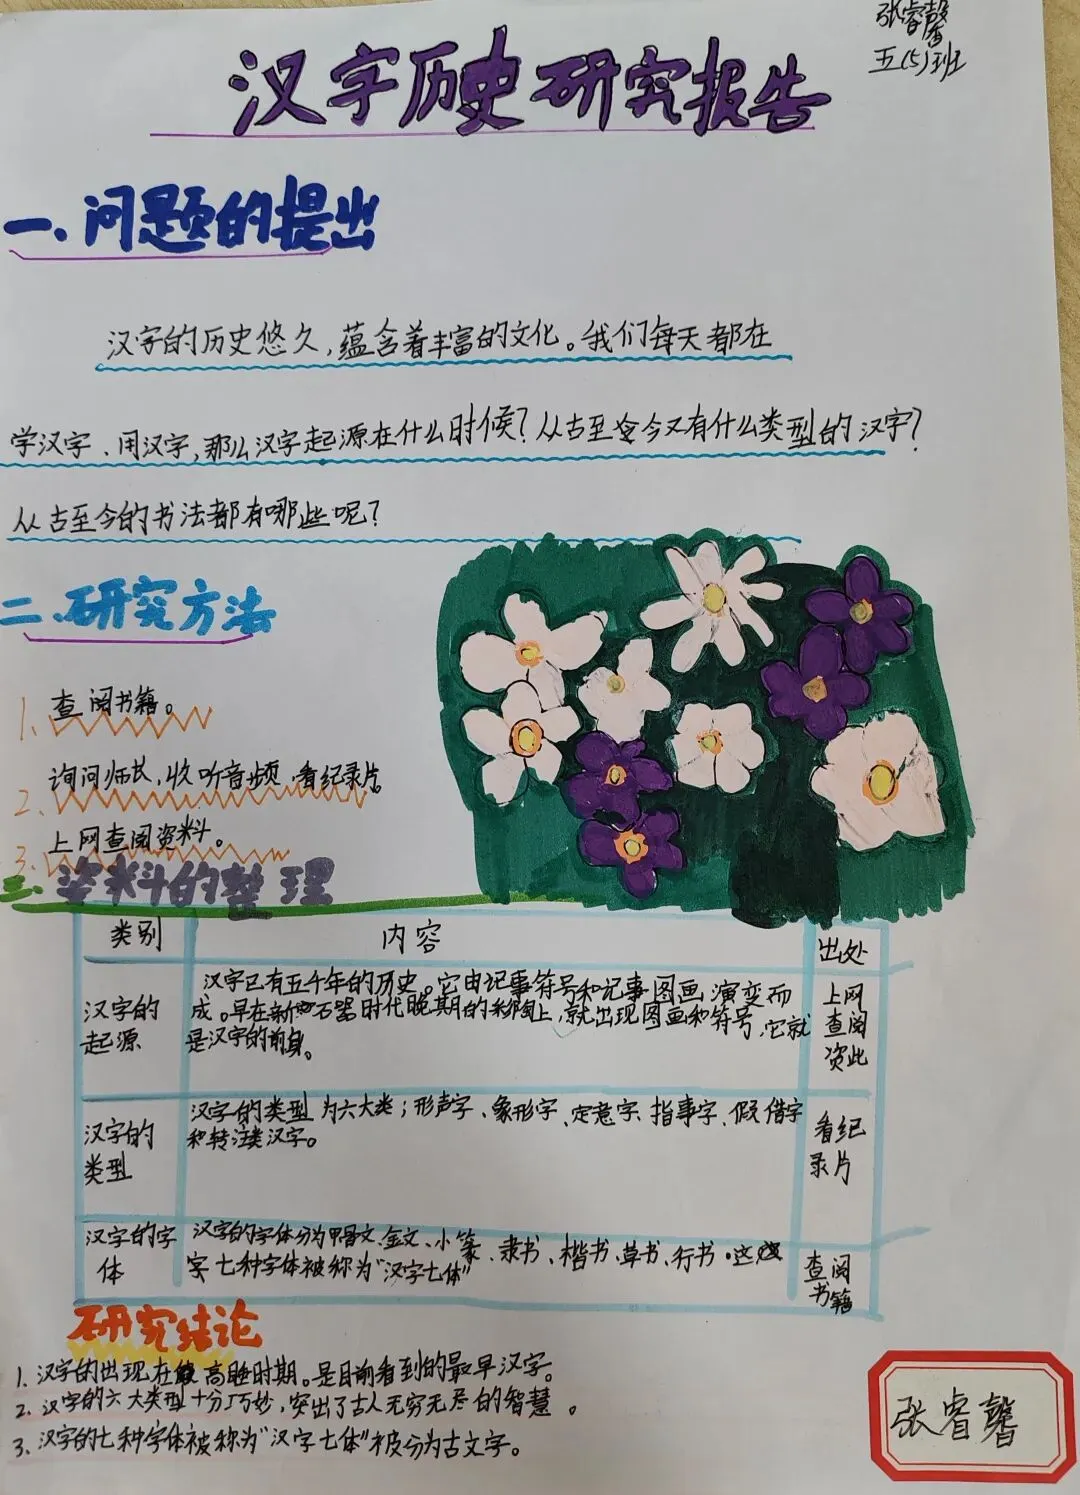 张睿馨
五(5)班
汉字历史研究报告
一、问题的提出
汉字的历史悠久,蕴含着丰富的文化。我们每天都在
学汉字、用汉字,那么汉字起源在什么时候?从古至今又有什么类型的汉字?
从古至今的书法都有哪些呢?
二.研究方法
1. 查阅书籍。
2. 询问师长,收听音频,看纪录片。
3. 上网查阅资料。
三.资料的整理
类别 内容 出处
汉字的
起源
汉字已有五千年的历史。它由记事符号和记事图画演变而
成。早在新石器时代晚期的陶上,就出现图画和符号,它就
是汉字的前身。
上网
查阅
资此
汉字的
类型
汉字的类型为六大类;形声字、象形字、定意字、指事字、假借字
和转注类汉字。
看纪
录片
汉字的字
体
汉字的字体分为甲骨文、金文、小篆、隶书、楷书、草书、行书。这
字七种字体被称为“汉字七体”
查阅
书籍
研究结论
1. 汉字的出现在高睡时期。是目前看到的最早汉字。
2. 汉字的六大类型十分巧妙,突出了古人无穷无尽的智慧。
3. 汉字的七种字体被称为“汉字七体”被分为古文字。
张睿馨